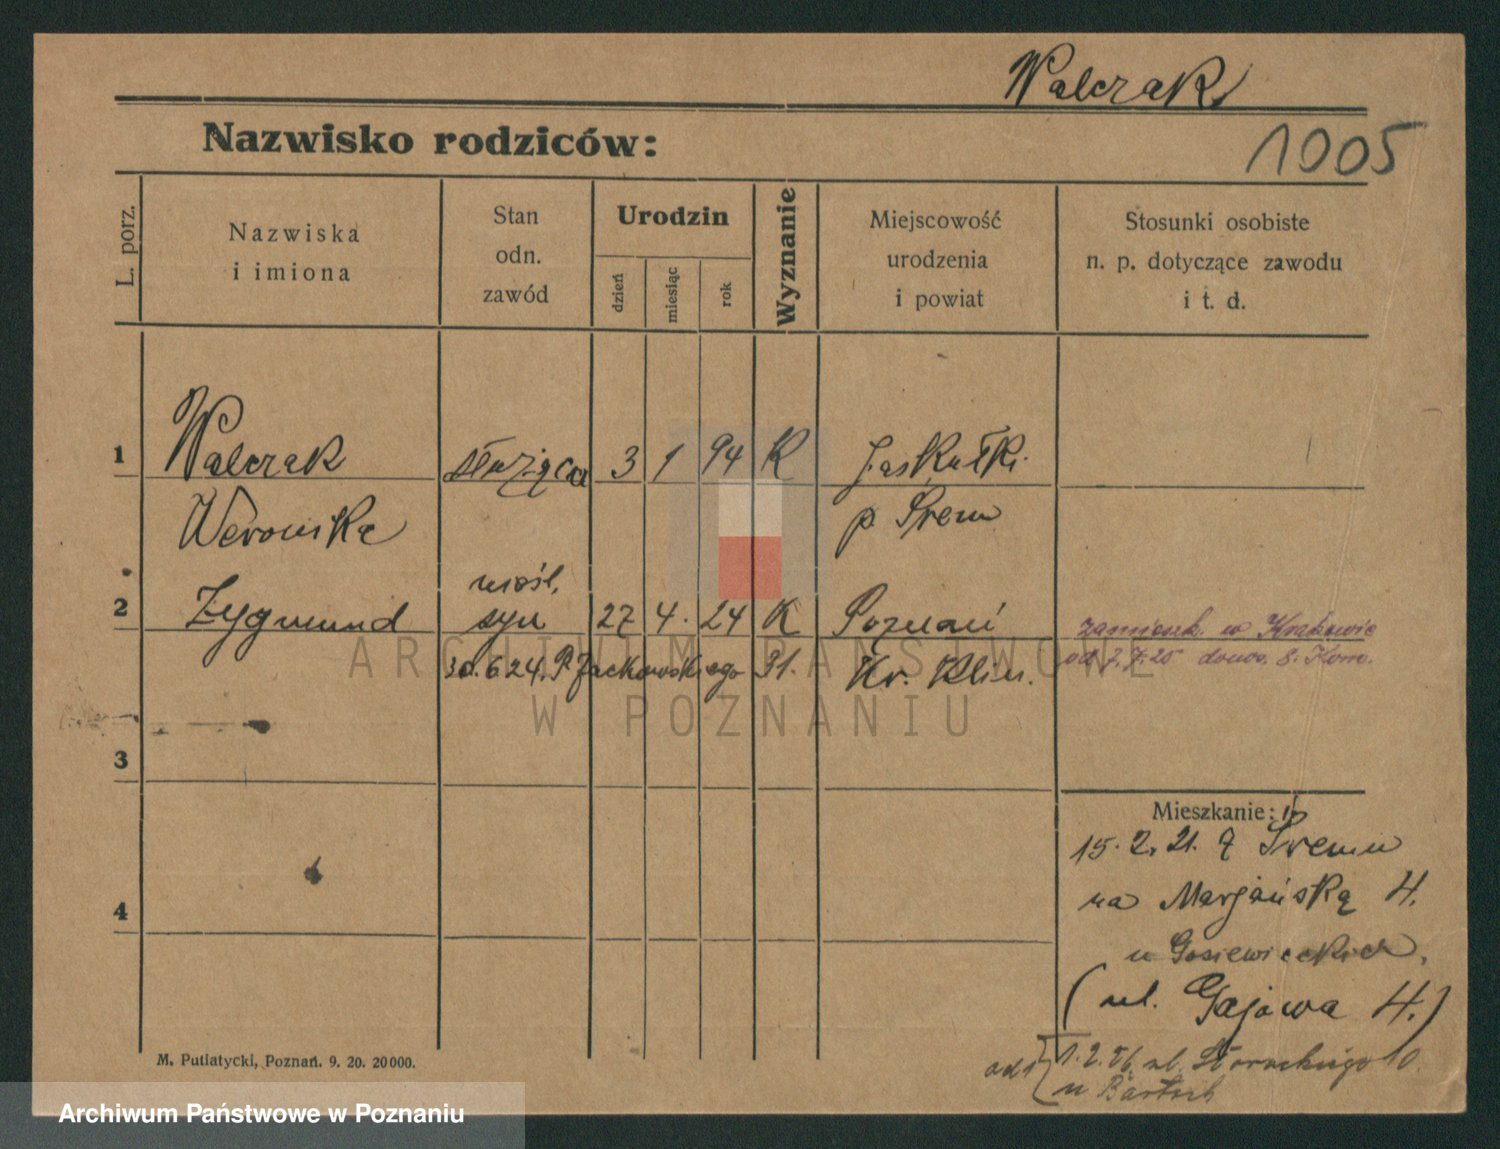 Walczak
Nazwisko rodziców:
1005
L. porz.
Nazwiska
i imiona
Stan
odn.
zawód
Urodzin
dzień
miesiąc
rok
Wyznanie
Miejscowość
urodzenia
i powiat
Stosunki osobiste
n. p. dotyczące zawodu
i t. d.
1 Walczak służąca 3 1 94 K Jaskułki
Weronika p. Śrem
nieśl.
2 Zygmund syn 27 4. 24 K Poznań
zamieszk. w Krakowie
30.6.24. P. Jackowskiego 31. Kr. Klin.
od 7.7.25 donos. 8. Kom.
ARCHIWUM PAŃSTWOWE
W POZNANIU
3
Mieszkanie:
15.2.21. z Śremu
4
na Marjańską 4.
u
(ul. Gajowa 4.)
M. Putiatycki, Poznań. 9. 20. 20000.
od 1.2.26 ul. 10.
u
Archiwum Państwowe w Poznaniu